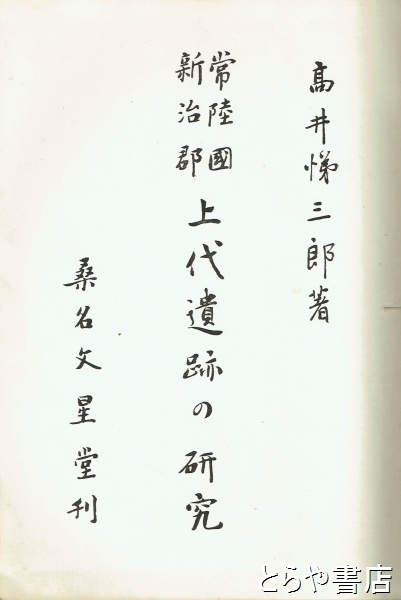 高井悌三郎著
常陸國
新治郡
上代遺跡の研究
桑名文星堂刊
とらや書店